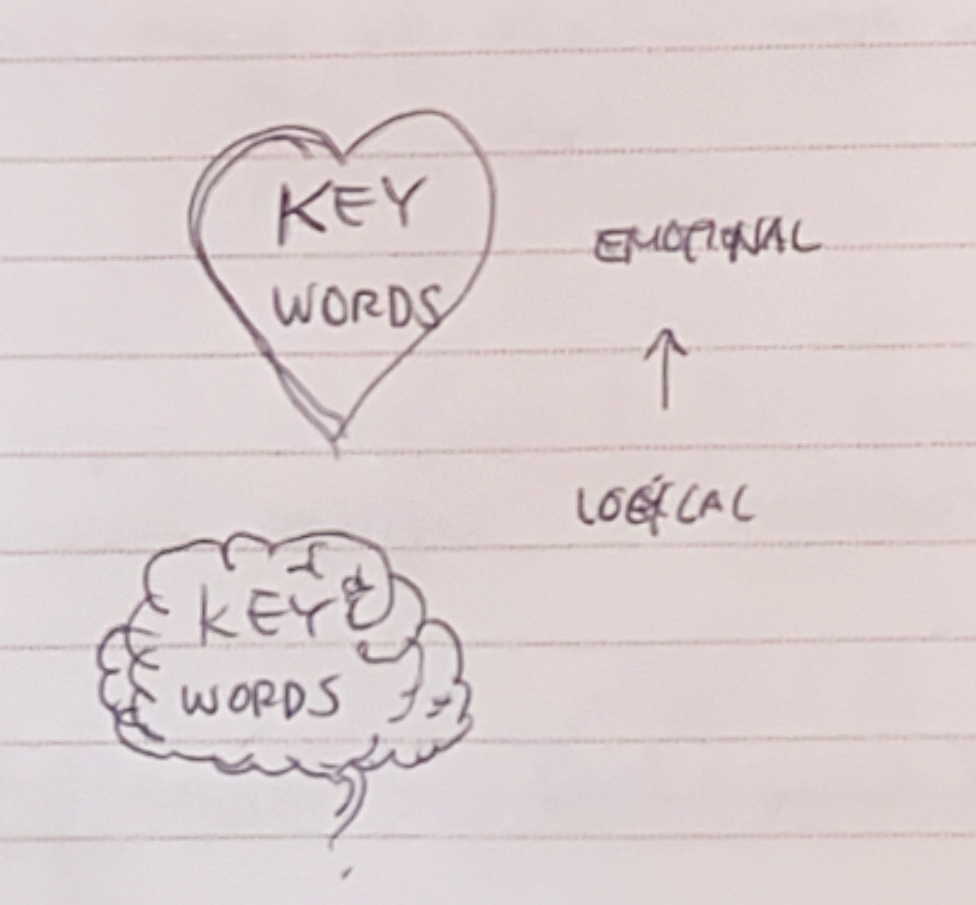 KEY
WORDS
EMOTIONAL
↑
LOGICAL
KEY
WORDS